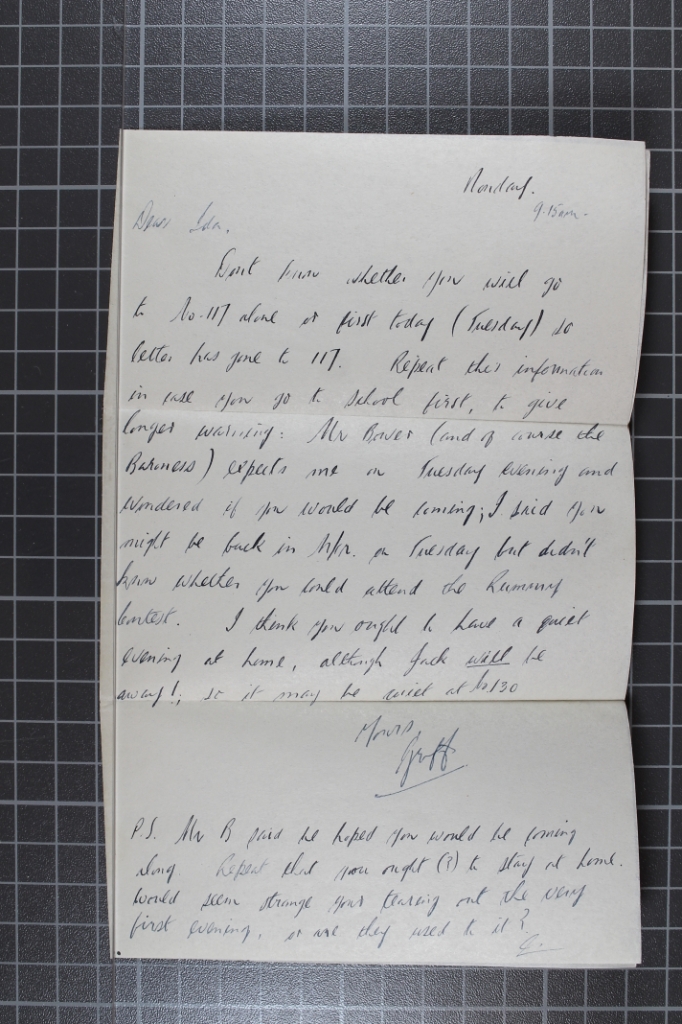 Monday.
9.15am.
Dear Ida,
Don't know whether you will go
to No. 117 alone or first today (Tuesday) so
letter has gone to 117. Repeat this information
in case you go to school first, to give
longer warning: Mr Bower (and of course the
Baroness) expects me on Tuesday evening and
wondered if you would be coming; I said you
might be back in M/r. on Tuesday but didn't
know whether you could attend the Rummy
Contest. I think you ought to have a quiet
evening at home, although Jack will be
away!; so it may be quiet at No 130
Yours,
Geoff.
P.S. Mr B said he hoped you would be coming
along. Repeat that you ought (?) to stay at home.
Would seem strange your tearing out the very
first evening, or are they used to it?
G.